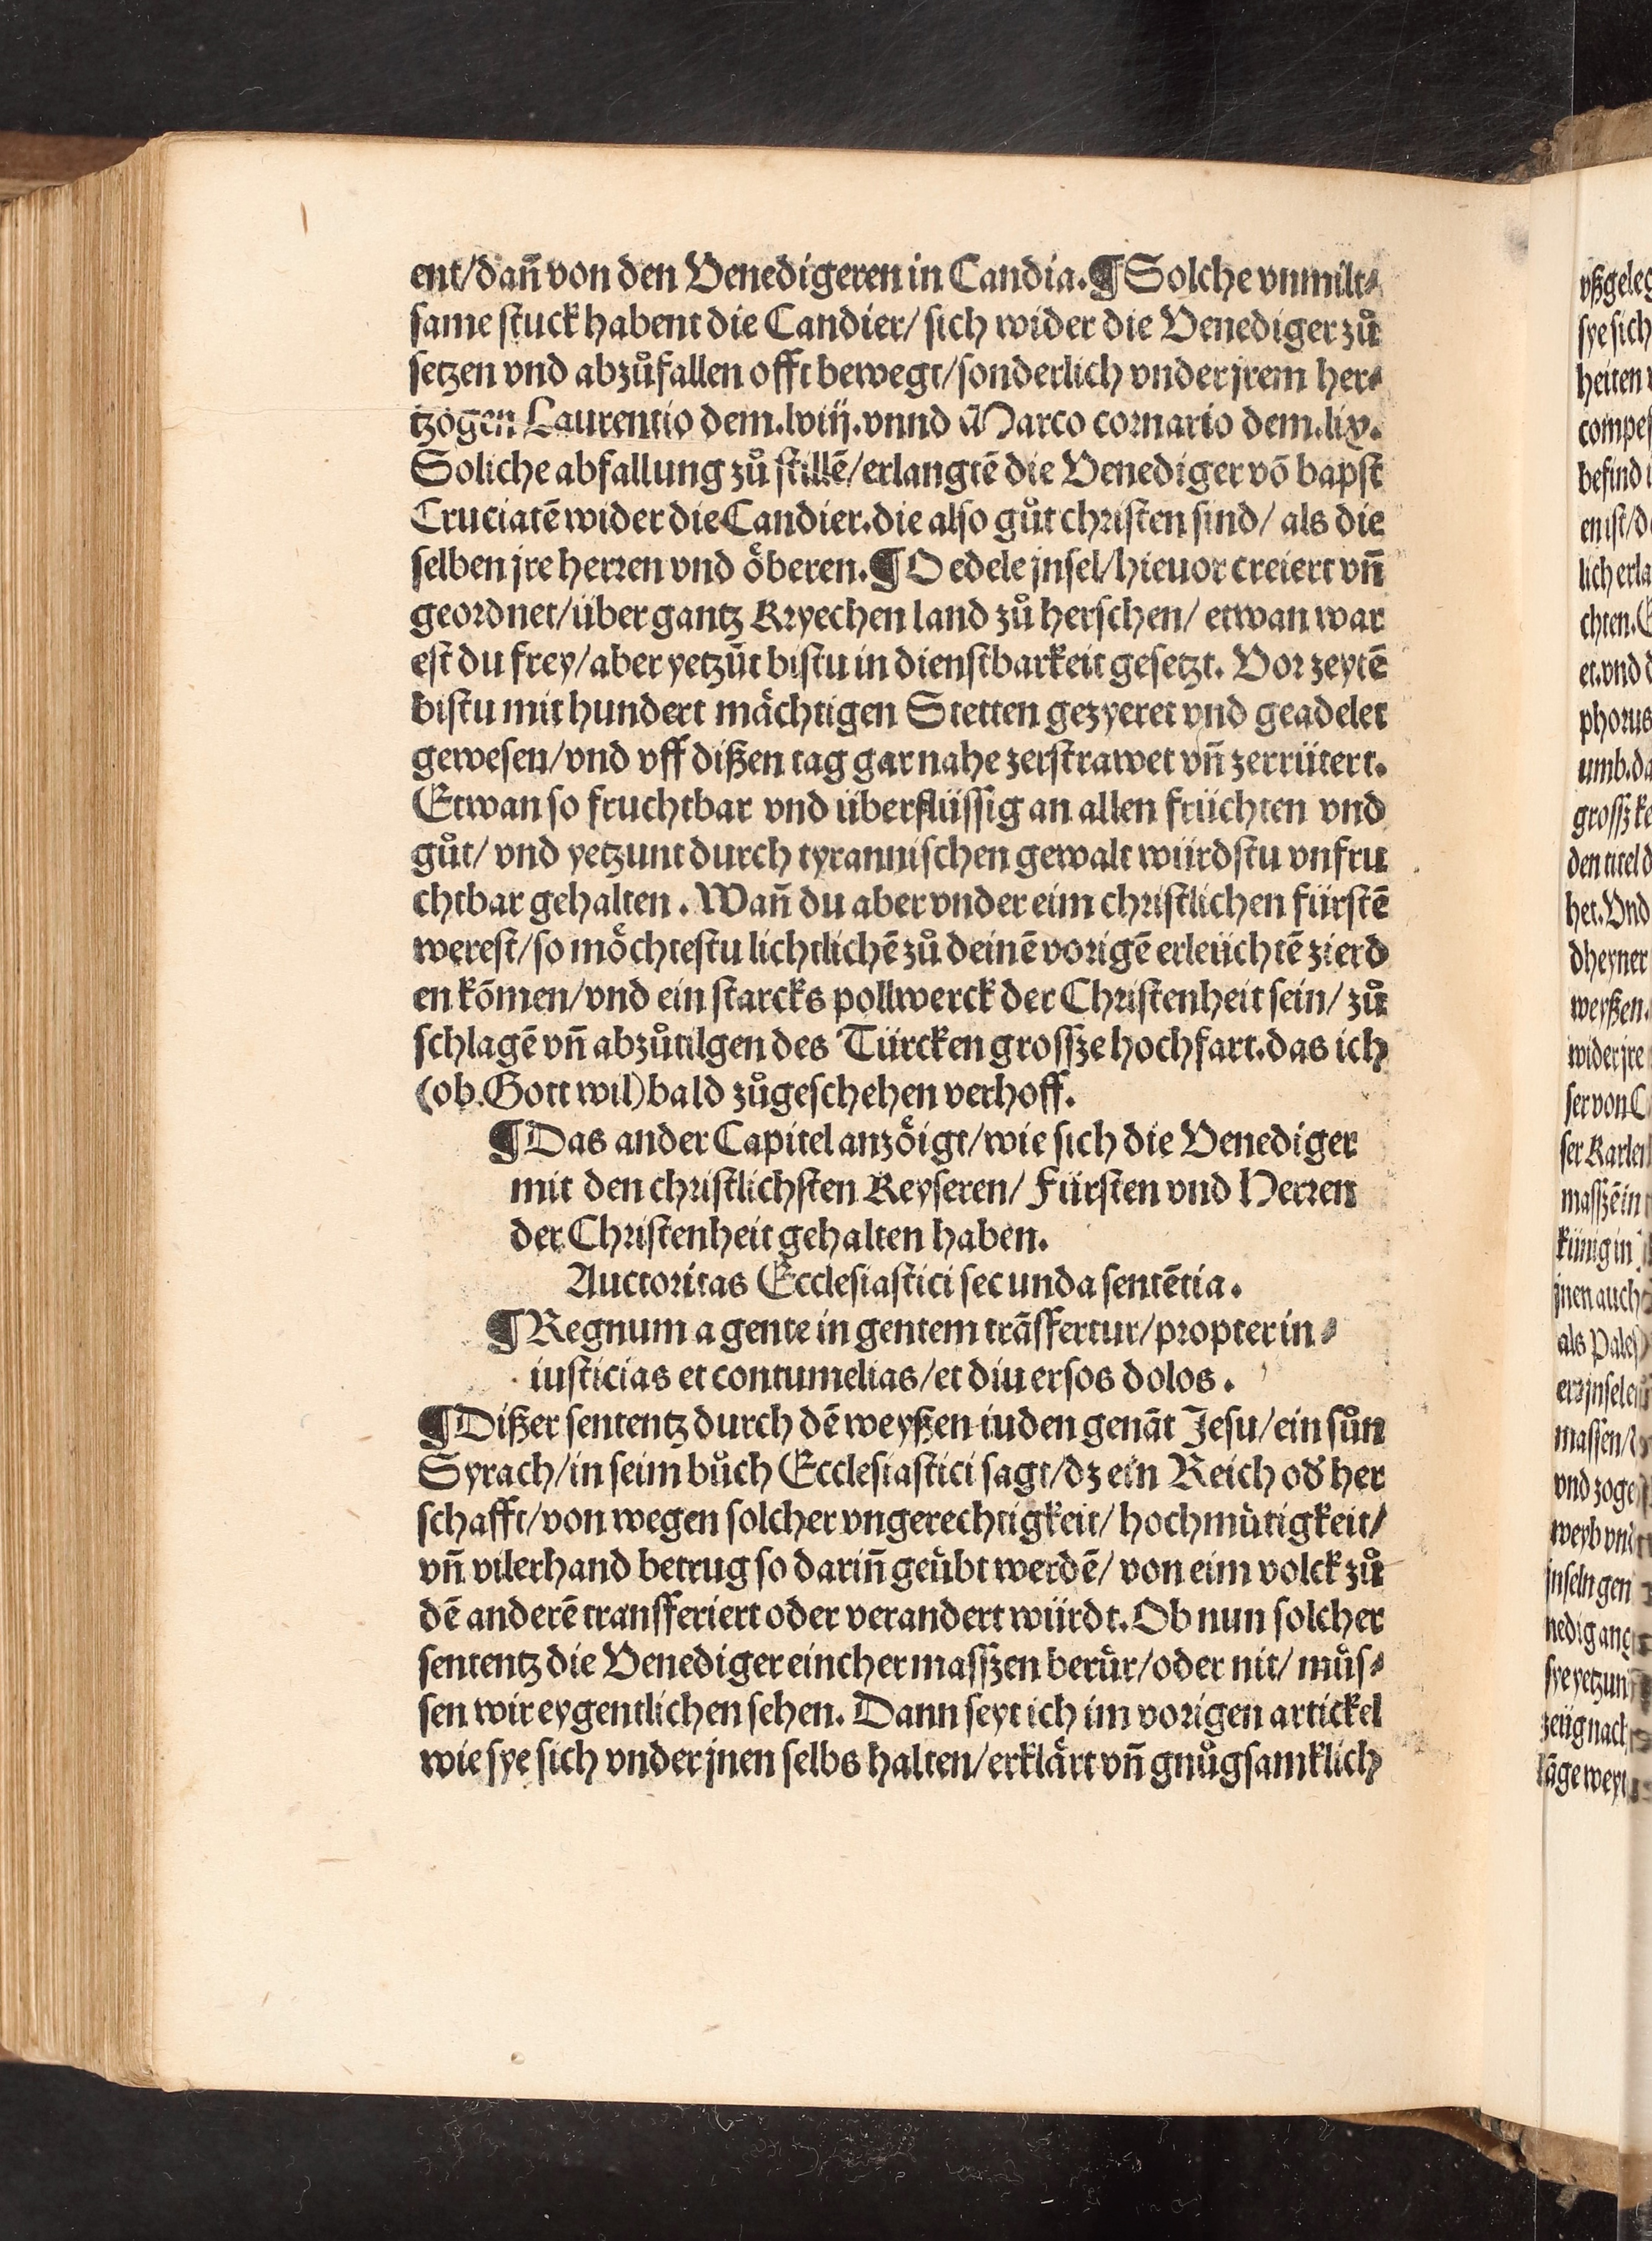 ent/dañ von den Venedigeren in Candia. ¶ Solche vnmilt⸗
same stuck habent die Candier/ sich wider die Venediger zů
setzen vnd abzůfallen offt bewegt/sonderlich vnder jrem her⸗
tzogen Laurentio dem.lviij.vnnd Marco cornario dem.lix.
Soliche abfallung zů stillē/erlangtē die Venediger vō bapst
Cruciatē wider die Candier.die also gůt christen sind/ als die
selben jre herren vnd öberen. ¶ O edele jnsel/hieuor creiert vñ
geordnet/über gantz Kryechen land zů herschen/ etwan war
est du frey/aber yetzūt bistu in dienstbarkeit gesetzt. Vor zeytē
bistu mit hundert mächtigen Stetten gezyeret vnd geadelet
gewesen/vnd vff dißen tag gar nahe zerstrawet vñ zerrütert.
Etwan so fruchtbar vnd überflüssig an allen früchten vnd
gůt/ vnd yetzunt durch tyrannischen gewalt würdstu vnfru
chtbar gehalten. Wañ du aber vnder eim christlichen fürstē
werest/so möchtestu lichtlichē zů deinē vorigē erleüchtē zierd
en kōmen/vnd ein starcks pollwerck der Christenheit sein/ zů
schlagē vñ abzůtilgen des Türcken grossze hochfart.das ich
(ob Gott wil)bald zůgeschehen verhoff.
¶ Das ander Capitel anzöigt/wie sich die Venediger
mit den christlichsten Keyseren/ Fürsten vnd Herren
der Christenheit gehalten haben.
Auctoritas Ecclesiastici secunda sentētia.
¶ Regnum a gente in gentem trāsfertur/propter in⸗
iusticias et contumelias/et diuersos dolos.
¶ Dißer sententz durch dē weyßen iuden genāt Jesu/ein sůn
Syrach/in seim bůch Ecclesiastici sagt/dz ein Reich od̛ her
schafft/von wegen solcher vngerechtigkeit/ hochmütigkeit/
vñ vilerhand betrug so dariñ geübt werdē/ von eim volck zů
dē anderē transferiert oder verandert würdt. Ob nun solcher
sententz die Venediger eincher masszen berür/oder nit/ můs⸗
sen wir eygentlichen sehen. Dann seyt ich im vorigen artickel
wie sye sich vnder jnen selbs halten/erklärt vñ gnůgsamklich